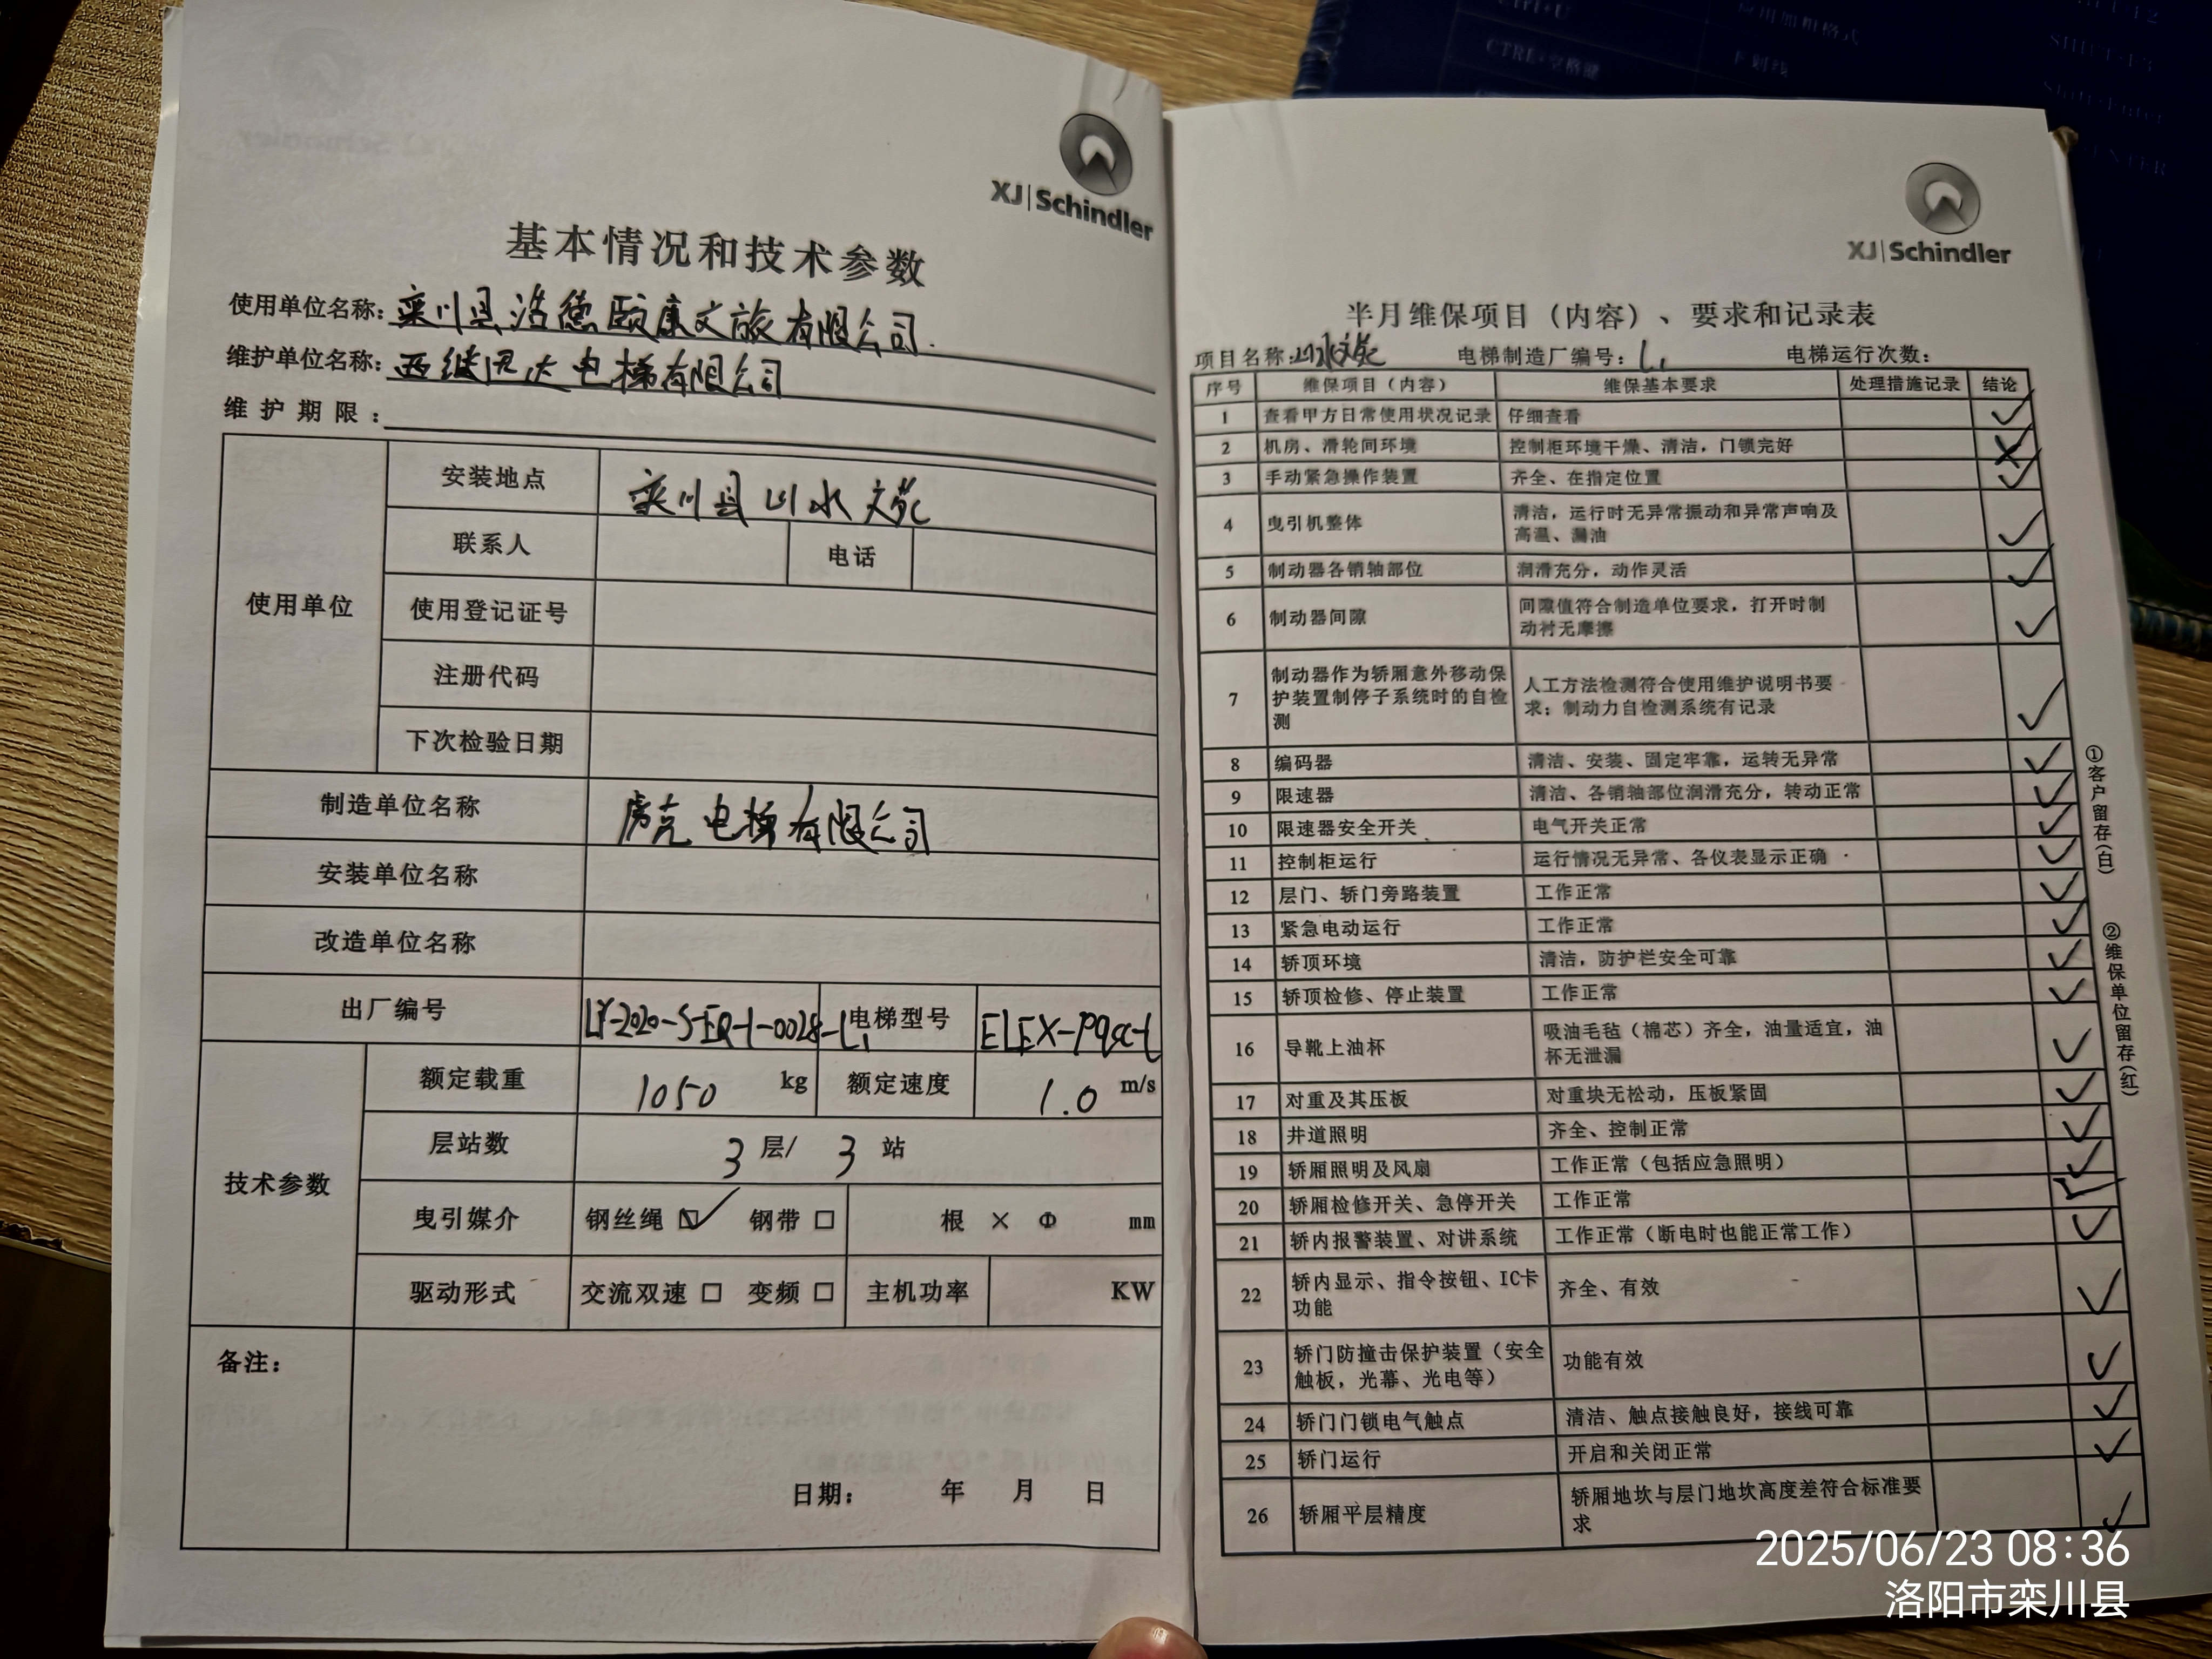 XJ|Schindler
基本情况和技术参数
使用单位名称：栾川县浩德颐康文旅有限公司
维护单位名称：西继迅达电梯有限公司
维护期限：
使用单位 安装地点 栾川县山水文苑
联系人 电话
使用登记证号
注册代码
下次检验日期
制造单位名称 电梯有限公司
安装单位名称
改造单位名称
出厂编号 LY-2020-S-EQ-1-0028-L1 电梯型号 ELEX-
技术参数 额定载重 1050 kg 额定速度 1.0 m/s
层站数 3 层/ 3 站
曳引媒介 钢丝绳 ☑ 钢带 □ 根 × Φ mm
驱动形式 交流双速 □ 变频 □ 主机功率 KW
备注：
日期： 年 月 日
XJ|Schindler
半月维保项目（内容）、要求和记录表
项目名称：山水文苑 电梯制造厂编号：L1 电梯运行次数：
序号 维保项目（内容） 维保基本要求 处理措施记录 结论
1 查看甲方日常使用状况记录 仔细查看 ✓
2 机房、滑轮间环境 控制柜环境干燥、清洁，门锁完好 ✗
3 手动紧急操作装置 齐全、在指定位置 ✓
4 曳引机整体 清洁，运行时无异常振动和异常声响及
高温、漏油 ✓
5 制动器各销轴部位 润滑充分，动作灵活 ✓
6 制动器间隙 间隙值符合制造单位要求，打开时制
动衬无摩擦 ✓
7 制动器作为轿厢意外移动保
护装置制停子系统时的自检
测 人工方法检测符合使用维护说明书要
求；制动力自检测系统有记录 ✓
8 编码器 清洁、安装、固定牢靠，运转无异常 ✓
9 限速器 清洁、各销轴部位润滑充分，转动正常 ✓
10 限速器安全开关 电气开关正常 ✓
11 控制柜运行 运行情况无异常、各仪表显示正确 ✓
12 层门、轿门旁路装置 工作正常 ✓
13 紧急电动运行 工作正常 ✓
14 轿顶环境 清洁，防护栏安全可靠 ✓
15 轿顶检修、停止装置 工作正常 ✓
16 导靴上油杯 吸油毛毡（棉芯）齐全，油量适宜，油
杯无泄漏 ✓
17 对重及其压板 对重块无松动，压板紧固 ✓
18 井道照明 齐全、控制正常 ✓
19 轿厢照明及风扇 工作正常（包括应急照明） ✓
20 轿厢检修开关、急停开关 工作正常 ✓
21 轿内报警装置、对讲系统 工作正常（断电时也能正常工作） ✓
22 轿内显示、指令按钮、IC卡
功能 齐全、有效 ✓
23 轿门防撞击保护装置（安全
触板，光幕、光电等） 功能有效 ✓
24 轿门门锁电气触点 清洁、触点接触良好，接线可靠 ✓
25 轿门运行 开启和关闭正常 ✓
26 轿厢平层精度 轿厢地坎与层门地坎高度差符合标准要
求 ✓
①客户留存（白）
②维保单位留存（红）
2025/06/23 08:36
洛阳市栾川县